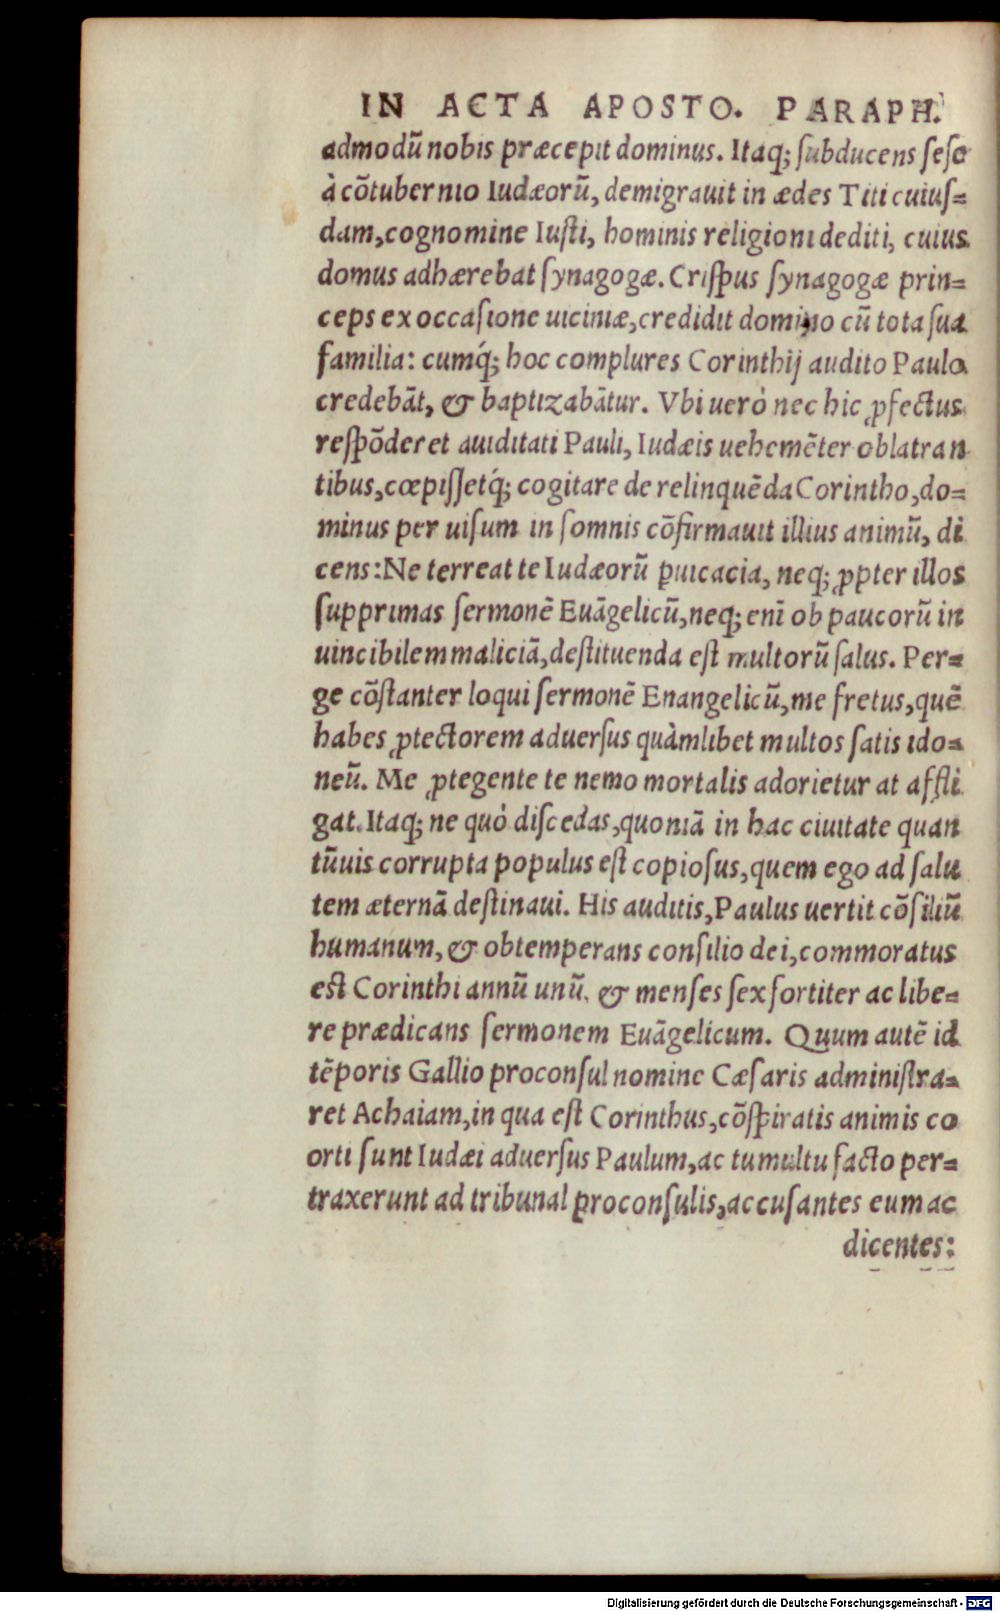 IN ACTA APOSTO. PARAPH.
admodũ nobis præcepit dominus. Itaq; ſubducens ſeſe
à cõtubernio Iudæorũ, demigrauit in ædes Titi cuiuſ=
dam, cognomine Iuſti, hominis religioni dediti, cuius
domus adhærebat ſynagogæ. Criſpus ſynagogæ prin=
ceps ex occaſione uiciniæ, credidit domino cũ tota ſua
familia: cumq́; hoc complures Corinthij audito Paulo
credebãt, & baptizabãtur. Vbi uerò nec hic ꝓfectus
reſpõderet auiditati Pauli, Iudæis uehemẽter oblatran
tibus, cœpiſſetq́; cogitare de relinquẽda Corintho, do=
minus per uiſum in ſomnis cõfirmauit illius animũ, di
cens: Ne terreat te Iudæorũ ꝑuicacia, neq; ꝓpter illos
ſupprimas ſermonẽ Euãgelicũ, neq; enĩ ob paucorũ in
uincibilem maliciã, deſtituenda eſt multorũ ſalus. Per=
ge cõſtanter loqui ſermonẽ Enangelicũ, me fretus, quẽ
habes ꝓtectorem aduerſus quàmlibet multos ſatis ido=
neũ. Me ꝓtegente te nemo mortalis adorietur at affli
gat. Itaq; ne quò diſcedas, quoniã in hac ciuitate quan
tũuis corrupta populus eſt copioſus, quem ego ad ſalu
tem æternã deſtinaui. His auditis, Paulus uertit cõſiliũ
humanum, & obtemperans conſilio dei, commoratus
eſt Corinthi annũ unũ, & menſes ſex fortiter ac libe=
re prædicans ſermonem Euãgelicum. Quum autẽ id
tẽporis Gallio proconſul nomine Cæſaris adminiſtra=
ret Achaiam, in qua eſt Corinthus, cõſpiratis animis co
orti ſunt Iudæi aduerſus Paulum, ac tumultu facto per=
traxerunt ad tribunal proconſulis, accuſantes eum ac
dicentes:
Digitalisierung gefördert durch die Deutsche Forschungsgemeinschaft - DFG